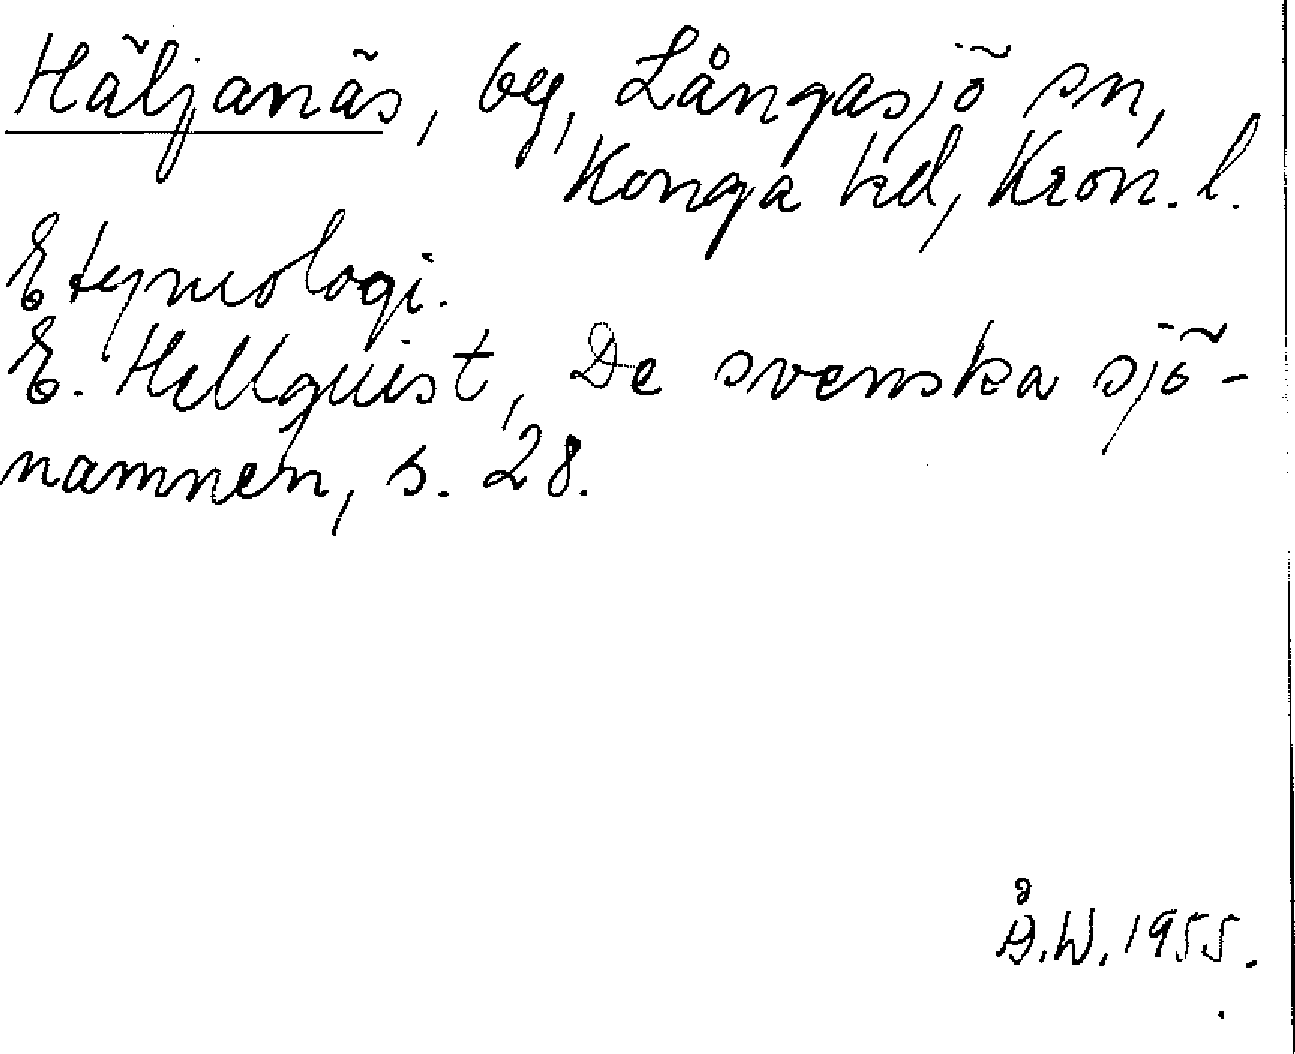 Häljanäs, by, Långasjö sn,
Konga hd, Kron. l.
Etymologi.
E. Hellquist, De svenska sjö-
namnen, s. 28.
Å.W. 1955.